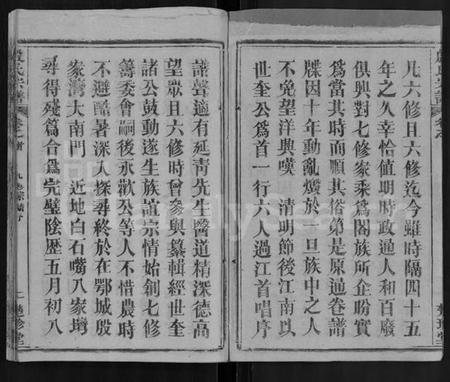 凡六修且六修迄今雖時隔四十五
年之久幸恰值明時政通人和百廢
俱興對七修家乘爲閤族所企盼實
爲當其時而順其俗弟是原通卷譜
牒因十年動亂燬於一旦族中之人
不免望洋興嘆 清明節後江南以
世奎公爲首一行六人過江首唱序
譜聲適有延靑先生醫道精深德高
望眾且六修時曾參與纂輯經世奎
諸公鼓動遂生族誼宗情始創七修
籌委會嗣後永歡公等人不惜農時
不避酷暑深入探尋終於在鄂城殷
家灣大南門 近地白石嘴八家塆
尋得殘篇合爲完璧陰歷五月初八